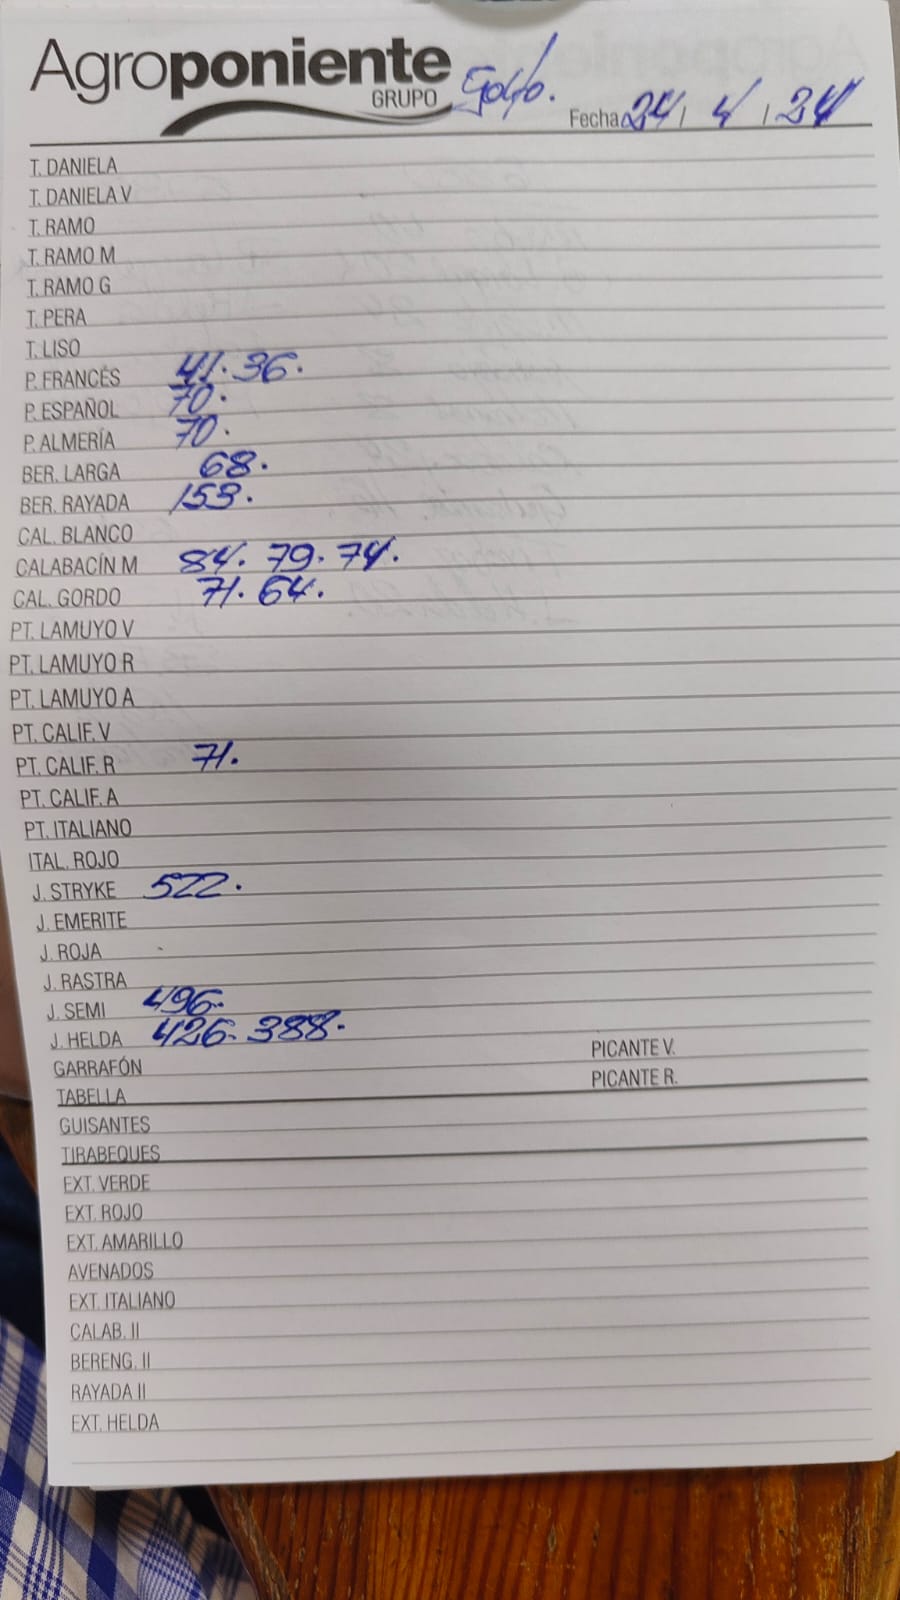 Agroponiente
GRUPO
Golfo.
Fecha 24 / 4 / 24
T. DANELA
T. DANIELA V
T. RAMO
T. RAMO M
T. RAMO G
T. PERA
T. LISO
P. FRANCÉS 41. 36.
P. ESPAÑOL 70.
P. ALMERÍA 70.
BER. LARGA 68.
BER. RAYADA 153.
CAL. BLANCO
CALABACÍN M 84. 79. 74.
CAL. GORDO 71. 64.
PT. LAMUYO V
PT. LAMUYO R
PT. LAMUYO A
PT. CALIF. V
PT. CALIF. R 71.
PT. CALIF. A
PT. ITALIANO
ITAL. ROJO
J. STRYKE 522.
J. EMERITE
J. ROJA
J. RASTRA
J. SEMI 496.
J. HELDA 426. 388.
GARRAFÓN PICANTE V.
TABELLA PICANTE R.
GUISANTES
TIRABEQUES
EXT. VERDE
EXT. ROJO
EXT. AMARILLO
AVENADOS
EXT. ITALIANO
CALAB. II
BERENG. II
RAYADA II
EXT. HELDA